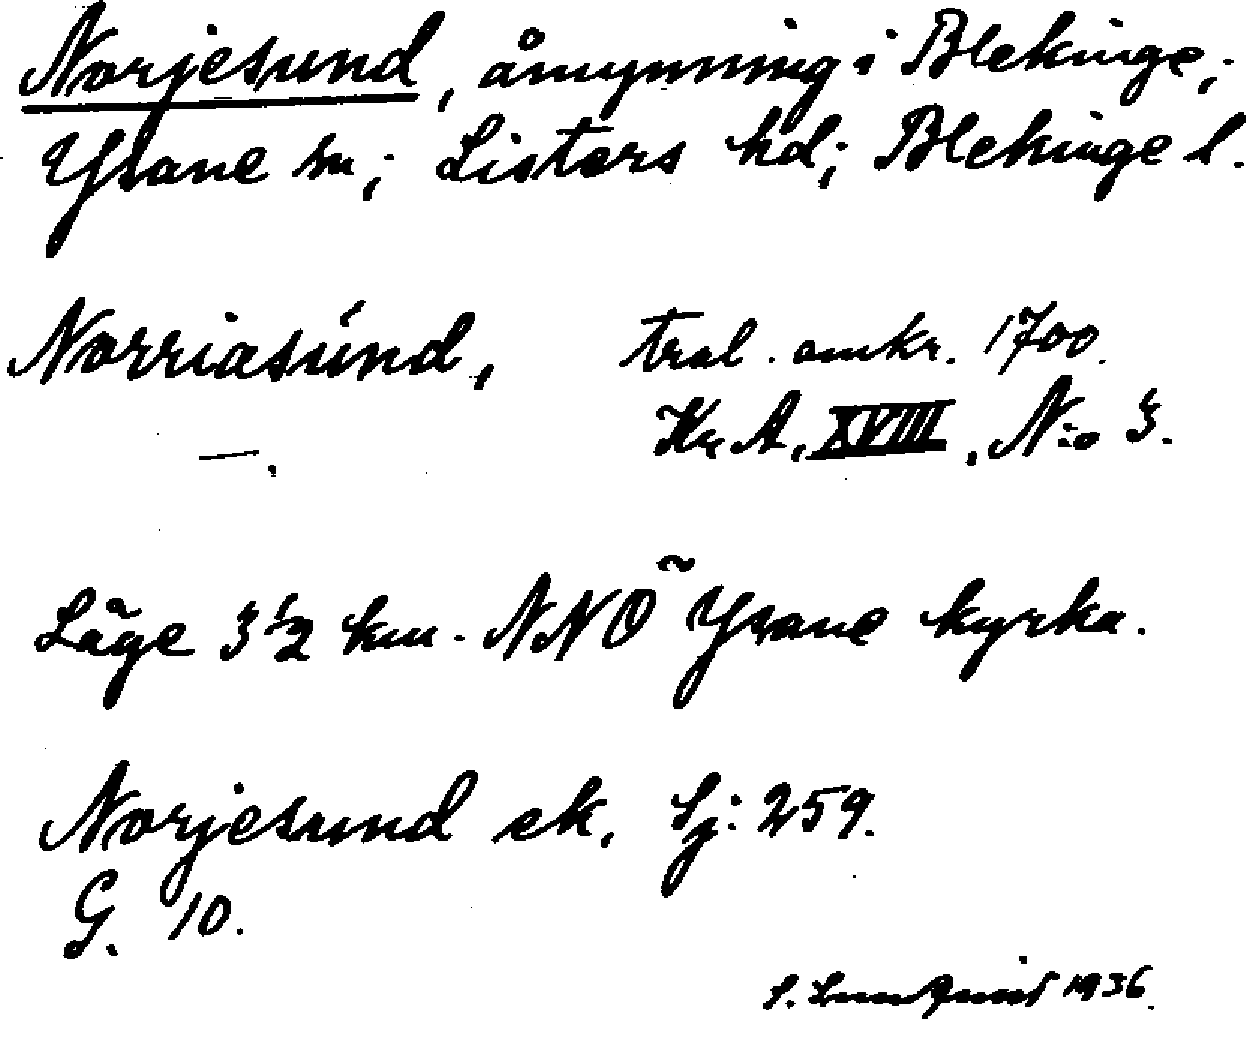 Norjesund, åmynning i Blekinge,
Ysane sn; Listers hd; Blekinge l.
Norriasúnd, tral. omkr. 1700.
—, Kr. A. XVIII, N:o 3.
Läge 3 1/2 km. NNO ~ Ysane kyrka.
Norjesund ek. Sj: 259.
G. 10.
S. Lundquist 1936.